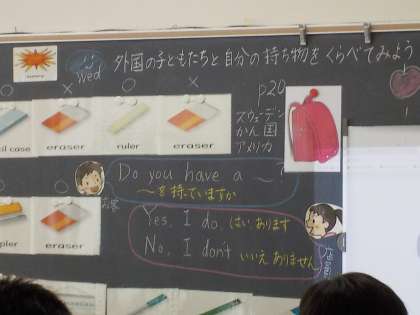 外国の子どもたちと自分の持ち物をくらべてみよう
sunny
wed
p20
スウェーデン
かん国
アメリカ
cil case
eraser
ruler
eraser
Do you have a ~?
~を持っていますか
eraser
Yes, I do. はい あります
No, I don't いいえ ありません
pler